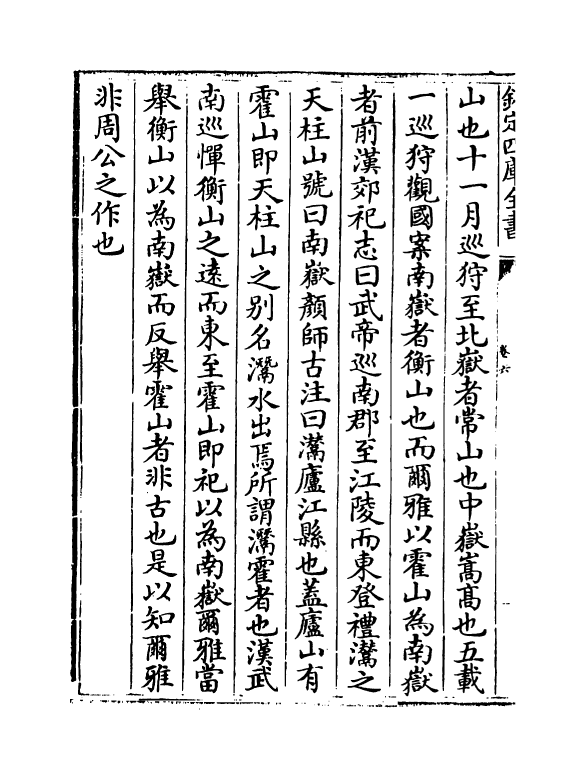 欽定四庫全書
卷六
山也十一月巡狩至北嶽者常山也中嶽嵩髙也五載
一巡狩觀國案南嶽者衡山也而爾雅以霍山為南嶽
者前漢郊祀志曰武帝巡南郡至江陵而東登禮灊之
天柱山號曰南嶽顔師古注曰灊廬江縣也蓋廬山有
霍山即天柱山之别名灊水出焉所謂灊霍者也漢武
南巡憚衡山之遠而東至霍山即祀以為南嶽爾雅當
舉衡山以為南嶽而反舉霍山者非古也是以知爾雅
非周公之作也